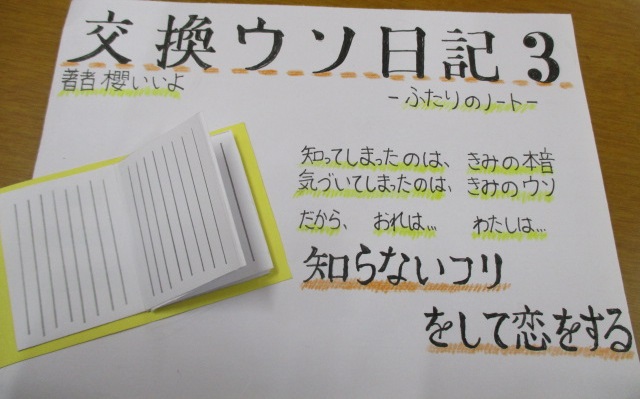 交換ウソ日記3
著者 櫻いいよ
-ふたりのノート-
知ってしまったのは、きみの本音
気づいてしまったのは、きみのウソ
だから、おれは… わたしは…
知らないフリ
をして恋をする